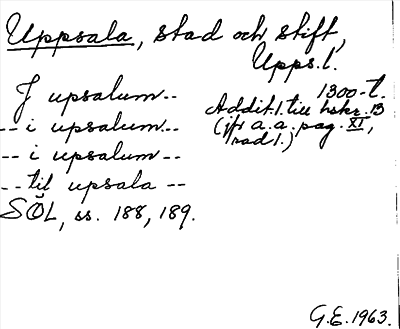 Uppsala, stad och stift,
Upps.l.
1300-t.
J upsalum--
Addit.1. till hskr. B
-- i upsalum--
(jfr a.a. pag. XI,
rad 1.)
-- i upsalum--
-- til upsala --
SÖL, ss. 188, 189.
G.E. 1963.